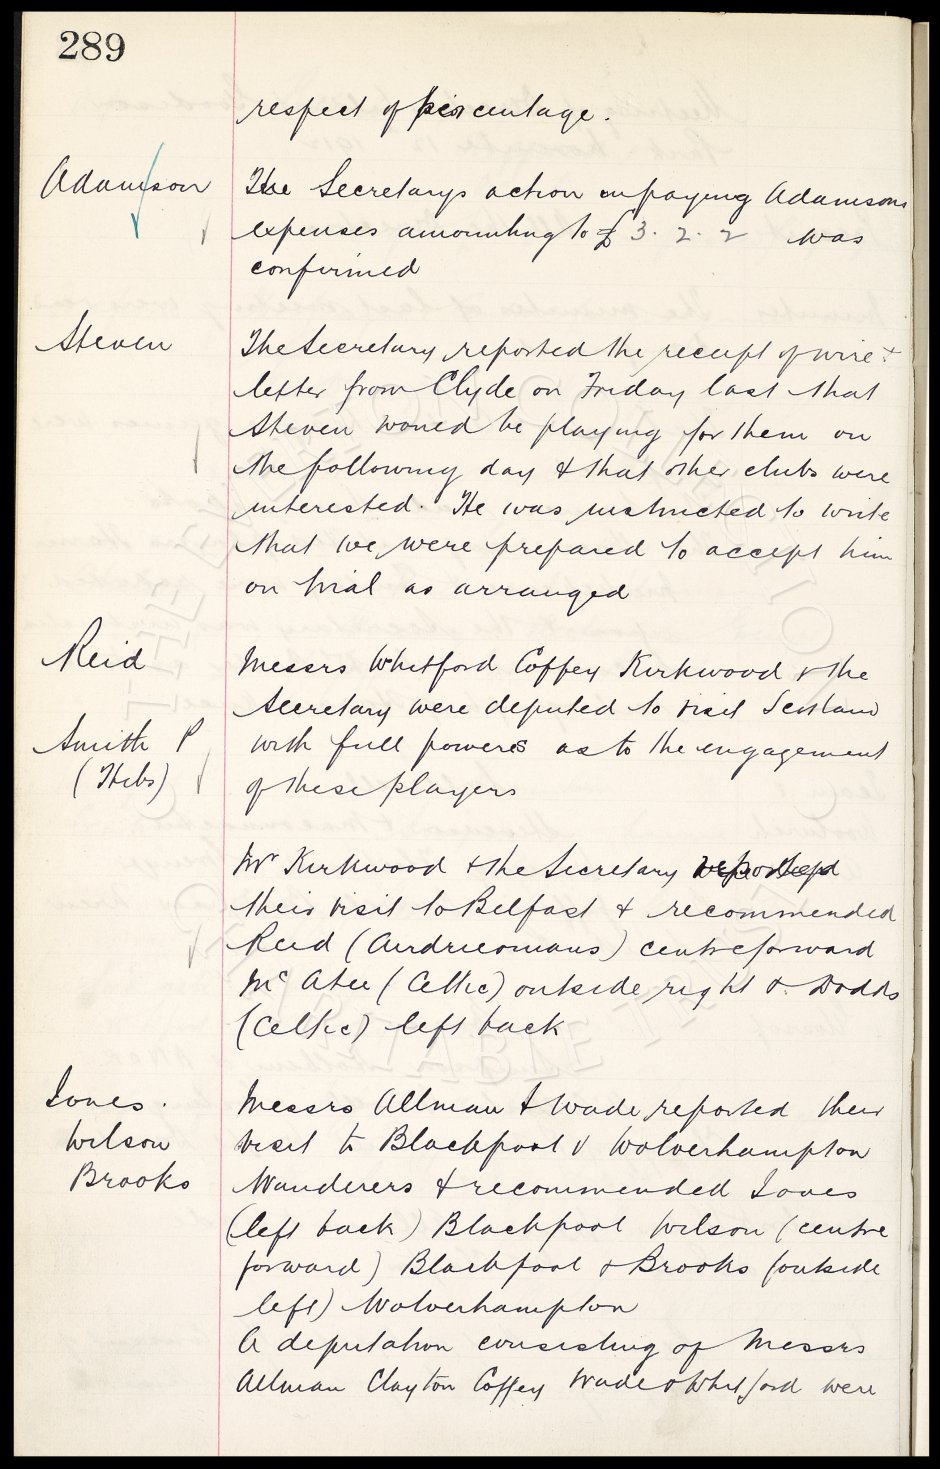 289
respect of percentage.
Adamson
The Secretarys action in paying Adamsons
expenses amounting to £3. 2. 2 was
confirmed
Steven
The Secretary reported the receipt of wire +
letter from Clyde on Friday last that
Steven would be playing for them on
the following day & that other clubs were
interested. He was instructed to write
that we were prepared to accept him
on trial as arranged
Reid
Messrs Whitford Coffey Kirkwood & the
Secretary were deputed to visit Scotland
Smith P
with full powers as to the engagement
(Hibs)
of these players
Mr Kirkwood & the Secretary reported
their visit to Belfast & recommended
Reid (Airdrieonians) centre forward
McAtee (Celtic) outside right & Dodds
(Celtic) left back
Jones.
Messrs Allman & Wade reported their
Wilson
visit to Blackpool & Wolverhampton
Brooks
Wanderers & recommended Jones
(left back) Blackpool Wilson (centre
forward) Blackpool & Brooks (outside
left) Wolverhampton
A deputation consisting of Messrs
Allman Clayton Coffey Wade & Whitford were